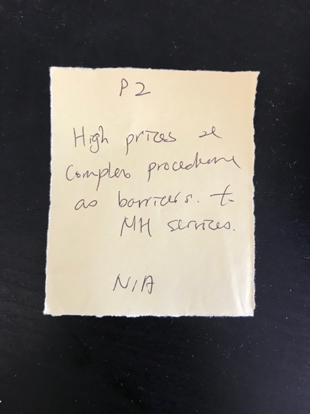 P2
High prices &
Complex procedure
as barriers. to
MH services.
N/A